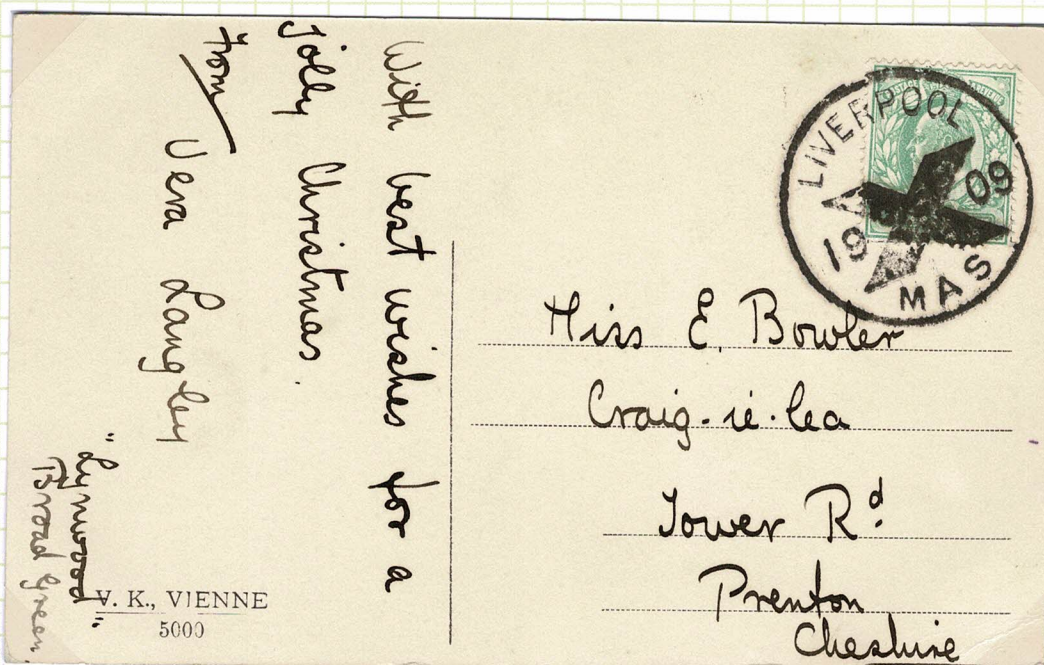 With best wishes for a
jolly Christmas.
From
Vera Langley
"Lynwood"
Broad Green.
V. K., VIENNE
5000
LIVERPOOL
19 09
MAS
Miss E. Bowler
Craig-ie-lea
Tower Rd.
Prenton
Cheshire